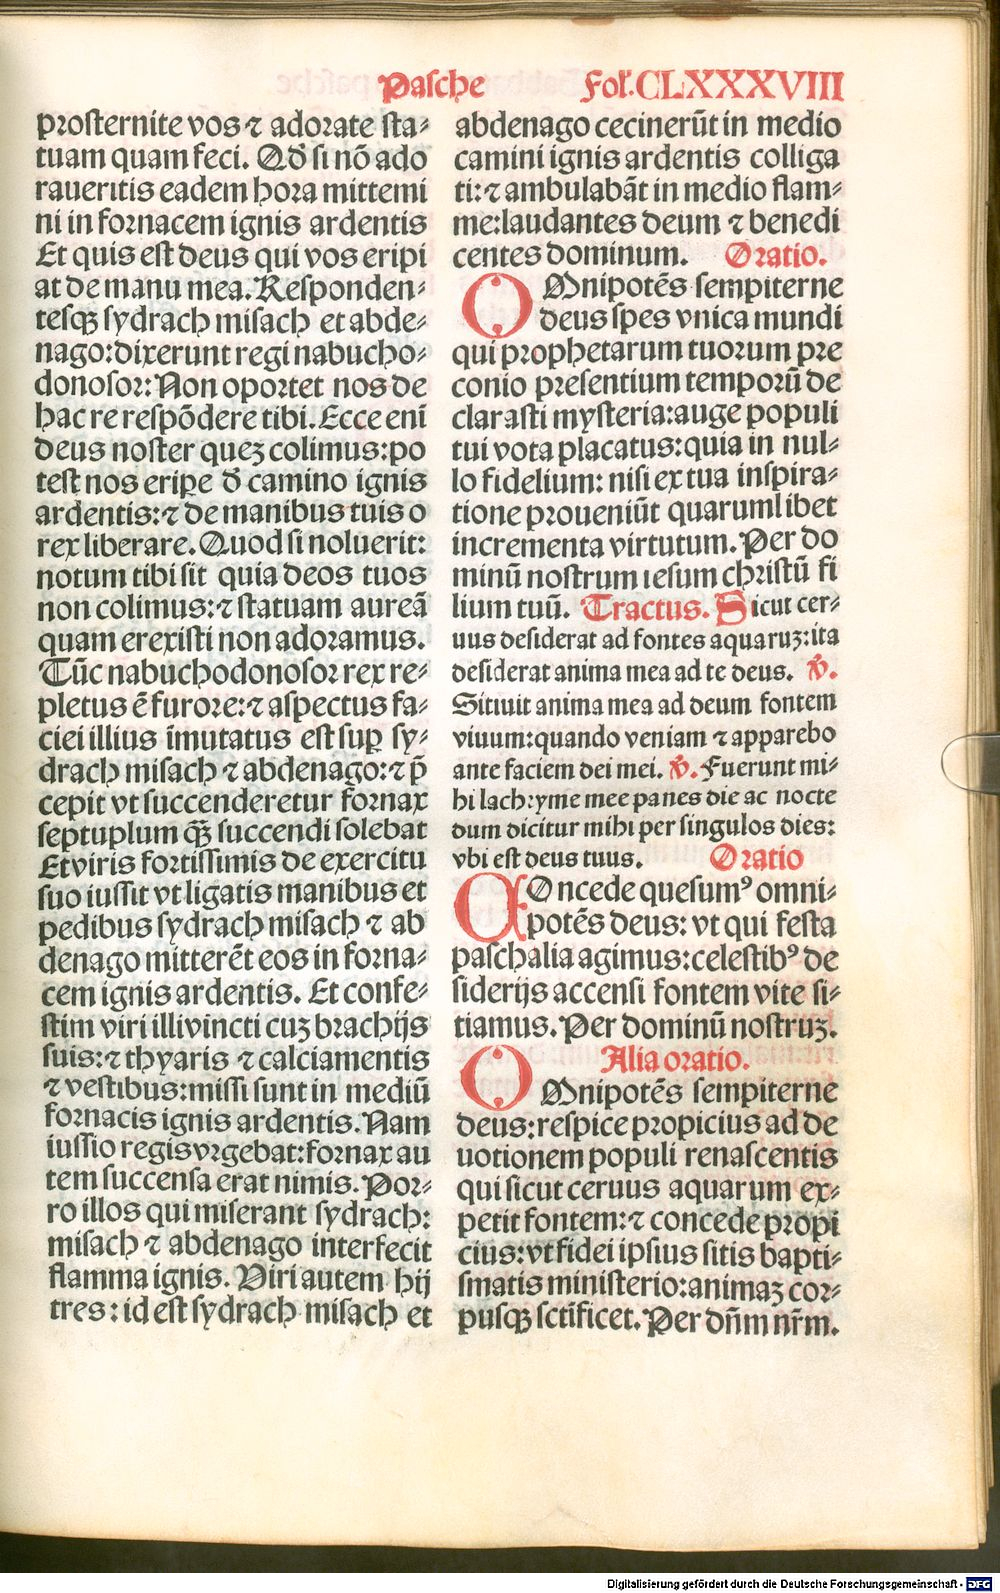 Pasche Fol.CLXXXVIII
prosternite vos ⁊ adorate sta⸗
tuam quam feci. Qđ si nõ ado
raueritis eadem hora mittemi
ni in fornacem ignis ardentis
Et quis est deus qui vos eripi
at de manu mea. Responden⸗
tesqꝫ sydrach misach et abde⸗
nago:dixerunt regi nabucho⸗
donosor: Non oportet nos de
hac re respõdere tibi. Ecce eni᷈
deus noster quez colimus:po
test nos eripe đ camino ignis
ardentis:⁊ de manibus tuis o
rex liberare. Quod si noluerit:
notum tibi sit quia deos tuos
non colimus:⁊ statuam aureã
quam erexisti non adoramus.
Tũc nabuchodonosor rex re⸗
pletus ẽ furore:⁊ aspectus fa⸗
ciei illius ĩmutatus est suꝑ sy⸗
drach misach ⁊ abdenago:⁊ p̃
cepit vt succenderetur fornax
septuplum q̃ꝫ succendi solebat
Et viris fortissimis de exercitu
suo iussit vt ligatis manibus et
pedibus sydrach misach ⁊ ab
denago mitterẽt eos in forna⸗
cem ignis ardentis. Et confe⸗
stim viri illi vincti cuz brachijs
suis:⁊ thyaris ⁊ calciamentis
⁊ vestibus:missi sunt in mediũ
fornacis ignis ardentis. Nam
iussio regis vrgebat:fornax au
tem succensa erat nimis. Por⸗
ro illos qui miserant sydrach:
misach ⁊ abdenago interfecit
flamma ignis. Viri autem hij
tres: id est sydrach misach et
abdenago cecinerũt in medio
camini ignis ardentis colliga
ti:⁊ ambulabãt in medio flam⸗
me:laudantes deum ⁊ benedi
centes dominum. Oratio.
OMnipotẽs sempiterne
deus spes vnica mundi
qui prophetarum tuorum pre
conio presentium temporũ de
clarasti mysteria:auge populi
tui vota placatus:quia in nul⸗
lo fidelium: nisi ex tua inspira⸗
tione proueniũt quarumlibet
incrementa virtutum. Per do
minũ nostrum iesum christũ fi
lium tuũ. Tractus. Sicut cer⸗
uus desiderat ad fontes aquaruz:ita
desiderat anima mea ad te deus. ℣.
Sitiuit anima mea ad deum fontem
viuum:quando veniam ⁊ apparebo
ante faciem dei mei. ℣. Fuerunt mi⸗
hi lachryme mee panes die ac nocte
dum dicitur mihi per singulos dies:
vbi est deus tuus. Oratio
COncede quesumꝰ omni⸗
potẽs deus: vt qui festa
paschalia agimus:celestibꝰ de
siderijs accensi fontem vite si⸗
tiamus. Per dominũ nostruz.
Alia oratio.
OMnipotẽs sempiterne
deus:respice propicius ad de
uotionem populi renascentis
qui sicut ceruus aquarum ex⸗
petit fontem:⁊ concede propi
cius:vt fidei ipsius sitis bapti⸗
smatis ministerio:animaz cor⸗
pusqꝫ sctĩficet. Per dñm nr̃m.
Digitalisierung gefördert durch die Deutsche Forschungsgemeinschaft - DFG